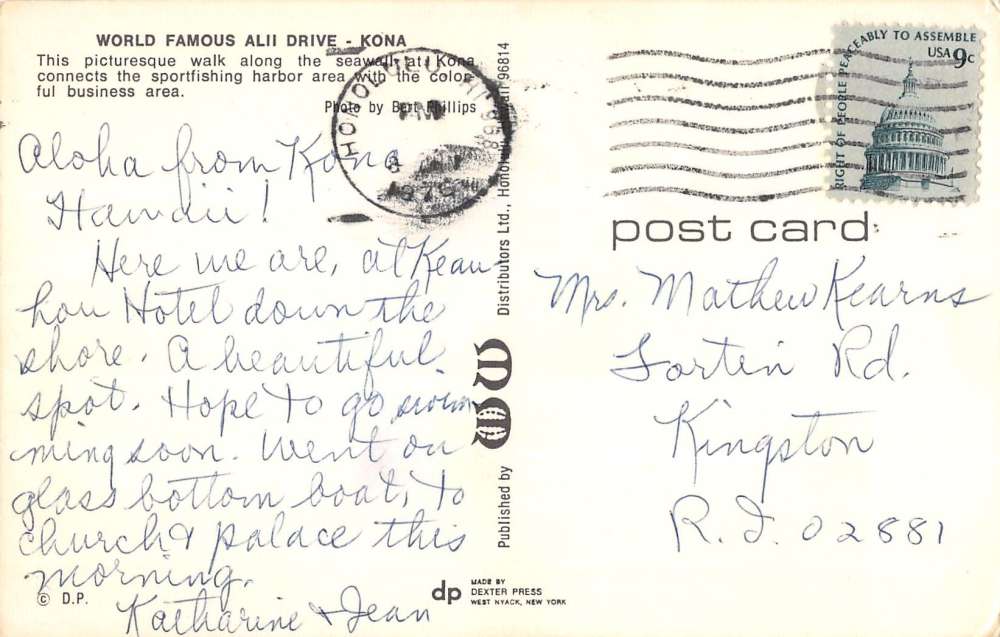 WORLD FAMOUS ALII DRIVE - KONA
This picturesque walk along the seawall at Kona
connects the sportfishing harbor area with the color-
ful business area.
Photo by Bert Phillips
Aloha from Kona
Hawaii!
Here we are, at Keau-
hou Hotel down the
shore. A beautiful
spot. Hope to go swim
ming soon. Went on
glass bottom boat, to
church & palace this
morning.
Katharine & Jean
© D.P.
Published by
Distributors Ltd., Honolulu, Hawaii 96814
dp
MADE BY
DEXTER PRESS
WEST NYACK, NEW YORK
HONOLULU, HI
PM
1979
RIGHT OF PEOPLE PEACEABLY TO ASSEMBLE
USA 9c
post card
Mrs. Mathew Kearns
Fortin Rd.
Kingston
R.I. 02881